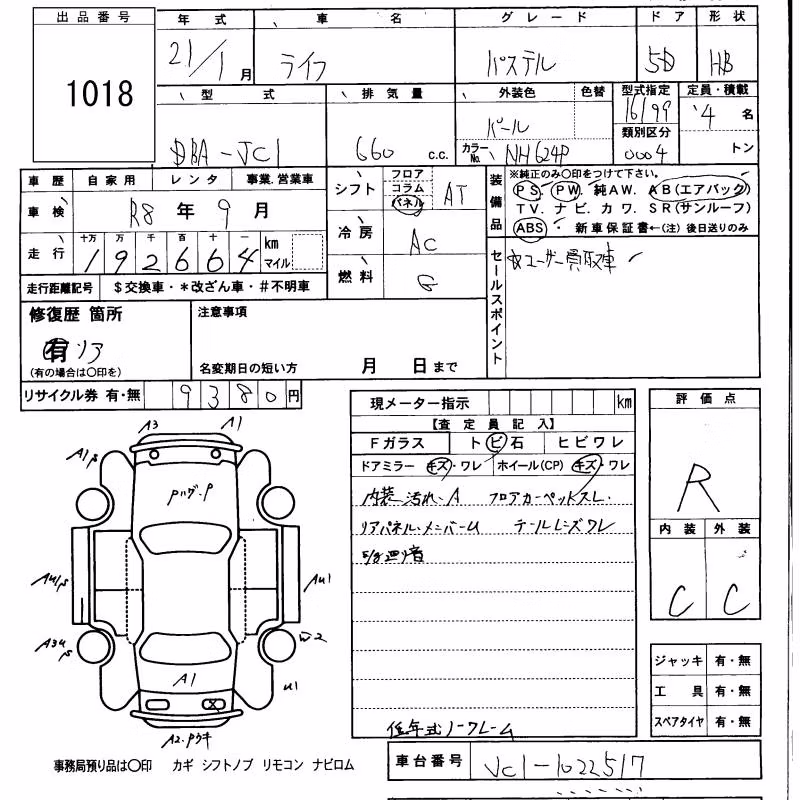 出品番号 年式 車名 グレード ドア 形状
1018 21/1月 ライフ パステル 5D HB
型式 排気量 外装色 色替 型式指定 定員・積載
DBA-JC1 660 c.c. パール 16199 4名
カラーNo. NH624P 類別区分 0004 トン
車歴 自家用 レンタ 事業.営業車
車検 R8年9月
走行 十万 万 千 百 十 km マイル
192664
走行距離記号 $交換車・*改ざん車・#不明車
シフト フロア コラム パネル AT
冷房 AC
燃料 G
装備品 ※純正のみ〇印をつけて下さい。
PS. PW. 純AW. AB(エアバック)
TV. ナビ. カワ. SR(サンルーフ)
ABS 新車保証書←(注) 後日送りのみ
セールスポイント ☆ユーザー買取車
修復歴 箇所
有 リア
(有の場合は〇印を)
注意事項
名変期日の短い方 月 日まで
リサイクル券 有・無 9380円
現メーター指示 km
【査定員記入】
Fガラス トビ石 ヒビワレ
ドアミラー キズ・ワレ ホイール(CP) キズ・ワレ
内装 汚れ・A フロアカーペットスレ
リアパネル・メンバーU テールレンズワレ
低年式ノークレーム
評価点
R
内装 外装
C C
A3 A1
A1
A1
A2.
AU1
W2
U1
ジャッキ 有・無
工具 有・無
スペアタイヤ 有・無
事務局預り品は〇印 カギ シフトノブ リモコン ナビロム
車台番号 JC1-1022517